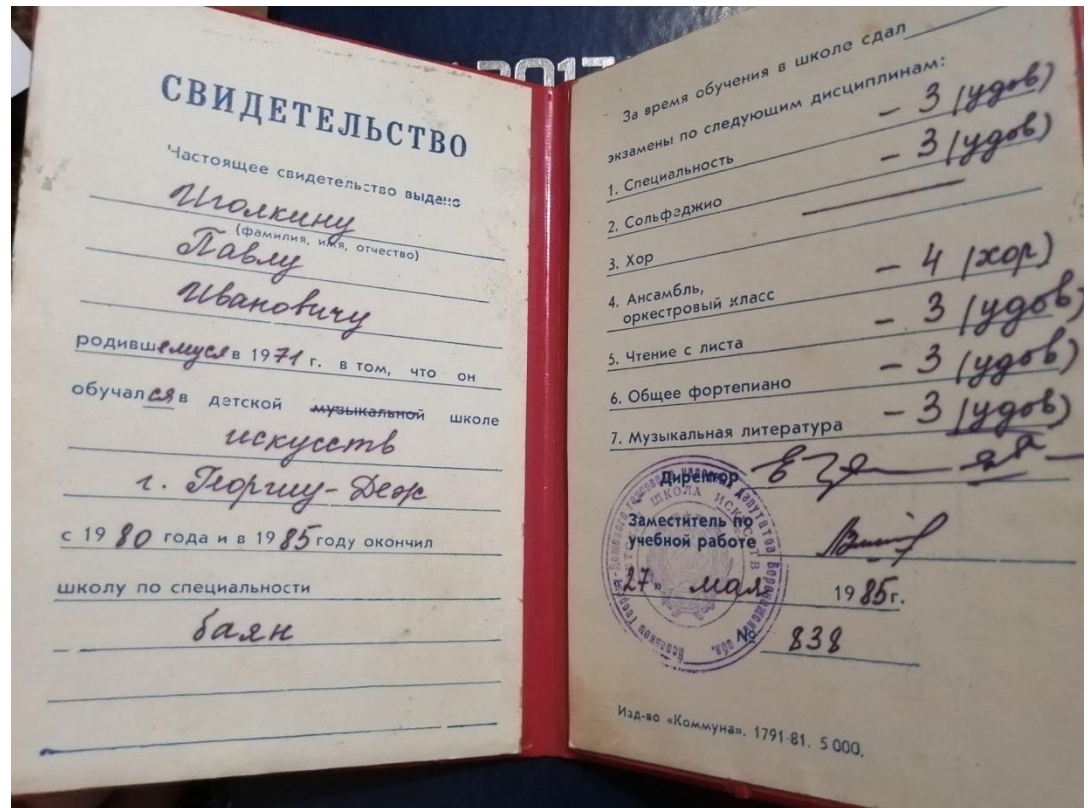 2017
СВИДЕТЕЛЬСТВО
Настоящее свидетельство выдано
Иголкину
(фамилия, имя, отчество)
Павлу
Ивановичу
родившемуся в 1971 г. в том, что он
обучался в детской музыкальной школе
искусств
г. Георгиу-Деж
с 1980 года и в 1985 году окончил
школу по специальности
баян
За время обучения в школе сдал
экзамены по следующим дисциплинам:
1. Специальность – 3 (удов)
2. Сольфеджио – 3 (удов)
3. Хор —
4. Ансамбль,
оркестровый класс – 4 (хор)
5. Чтение с листа – 3 (удов)
6. Общее фортепиано – 3 (удов)
7. Музыкальная литература – 3 (удов)
Директор
Заместитель по
учебной работе
27 „ мая 1985 г.
№ 838
ШКОЛА ИСКУССТВ
депутатов Воронежской обл.
Изд-во «Коммуна». 1791-81. 5 000.